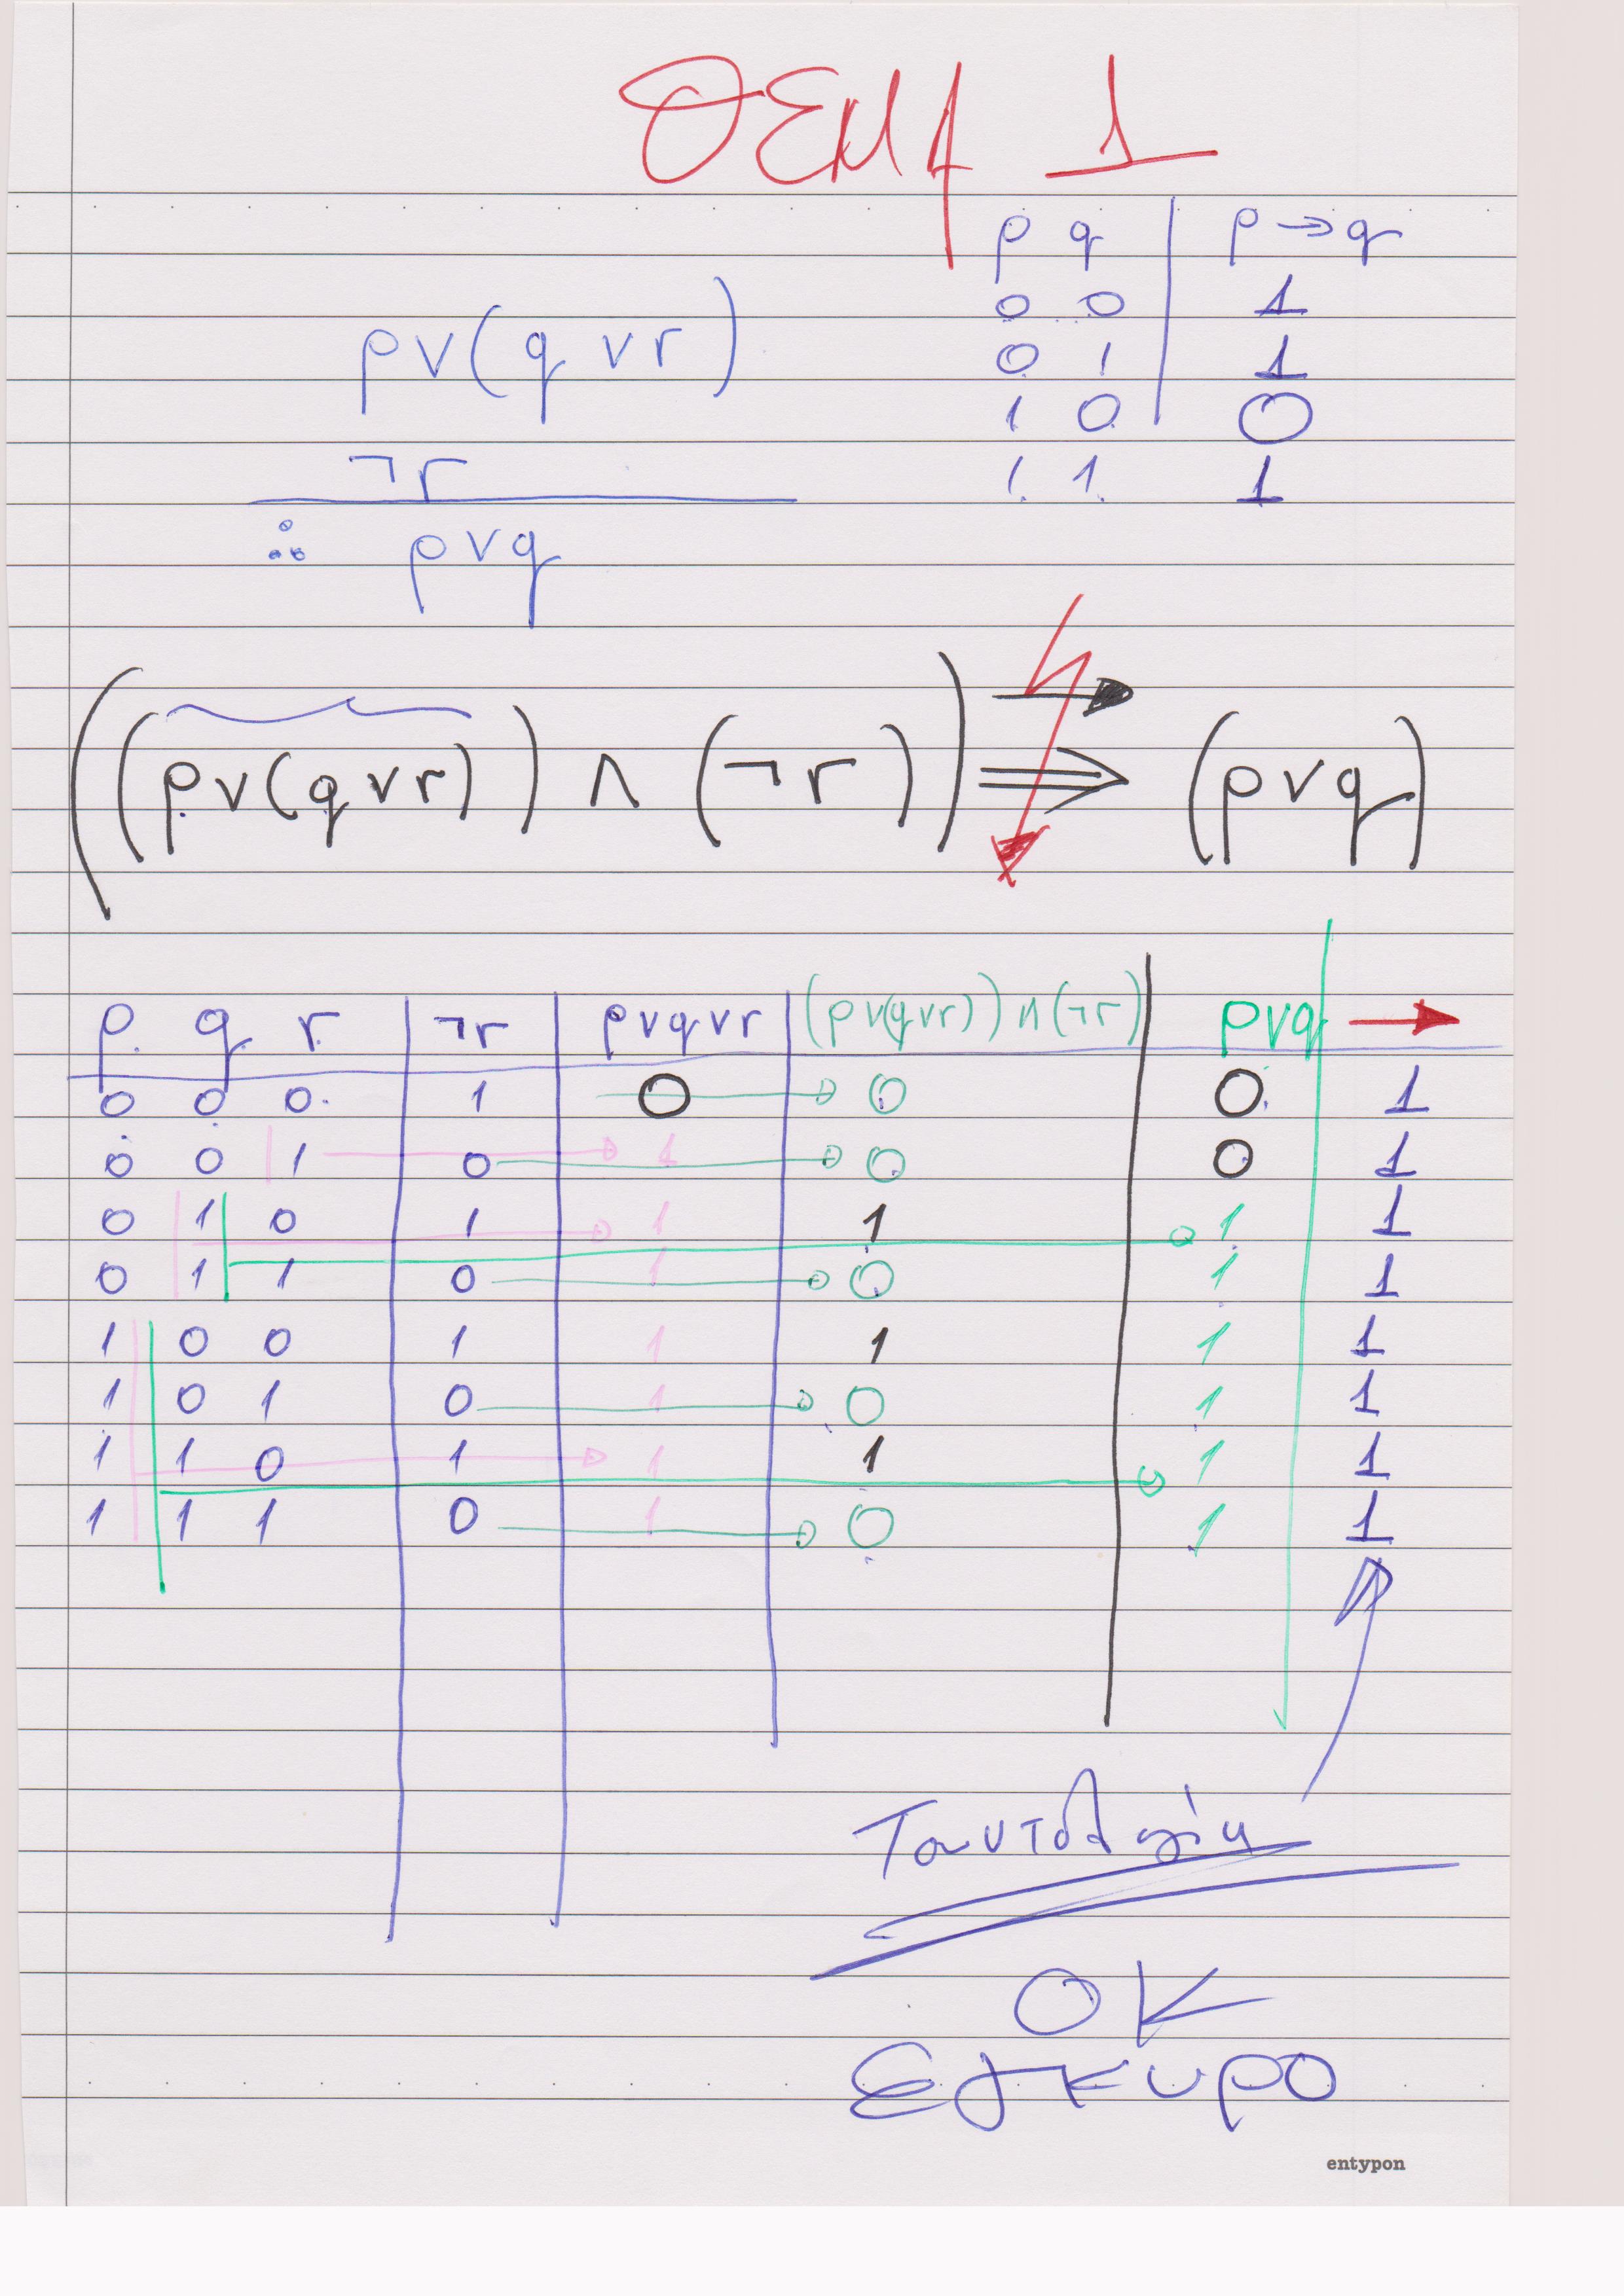 ΘΕΜΑ 1
p q | p → q
0 0 | 1
0 1 | 1
1 0 | 0
1 1 | 1
p∨(q∨r)
¬r
∴ p∨q
((p∨(q∨r)) ∧ (¬r)) → ⇒ (p∨q)
p q r | ¬r | p∨q∨r | (p∨(q∨r))∧(¬r) | p∨q | →
0 0 0 | 1 | 0 | 0 | 0 | 1
0 0 1 | 0 | 1 | 0 | 0 | 1
0 1 0 | 1 | 1 | 1 | 1 | 1
0 1 1 | 0 | 1 | 0 | 1 | 1
1 0 0 | 1 | 1 | 1 | 1 | 1
1 0 1 | 0 | 1 | 0 | 1 | 1
1 1 0 | 1 | 1 | 1 | 1 | 1
1 1 1 | 0 | 1 | 0 | 1 | 1
Ταυτολογία
ΟΚ
Εγκυρο
entypon